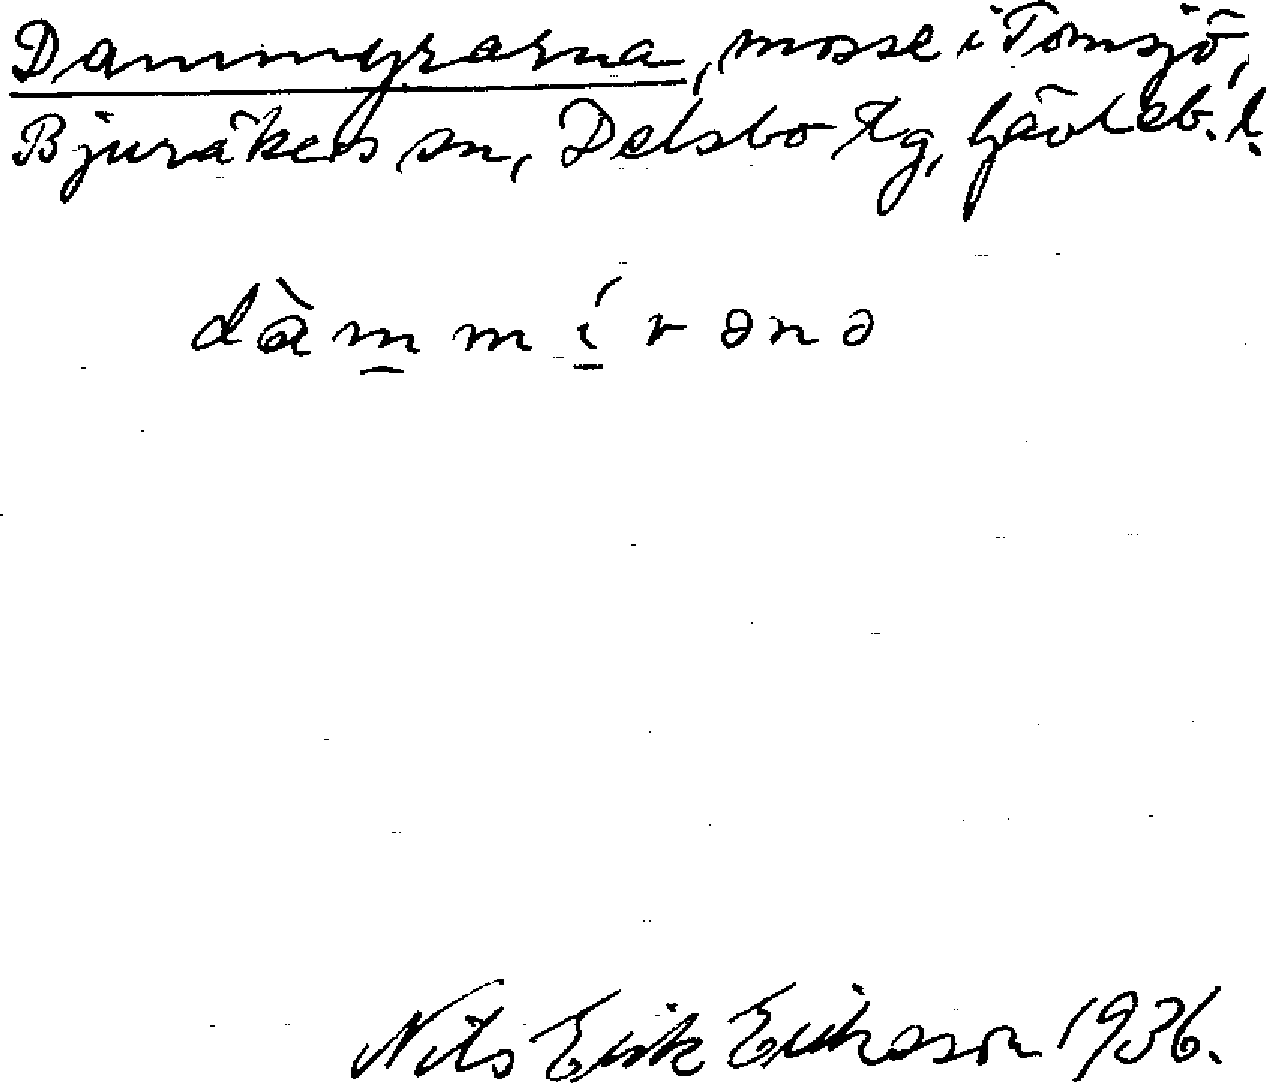 Dammyrarna, mosse i Tomsjö,
Bjuråkers sn, Delsbo tg, Gävleb. l.
dàm̲ m í̲ r ə n ə
Nils Erik Erikson 1936.